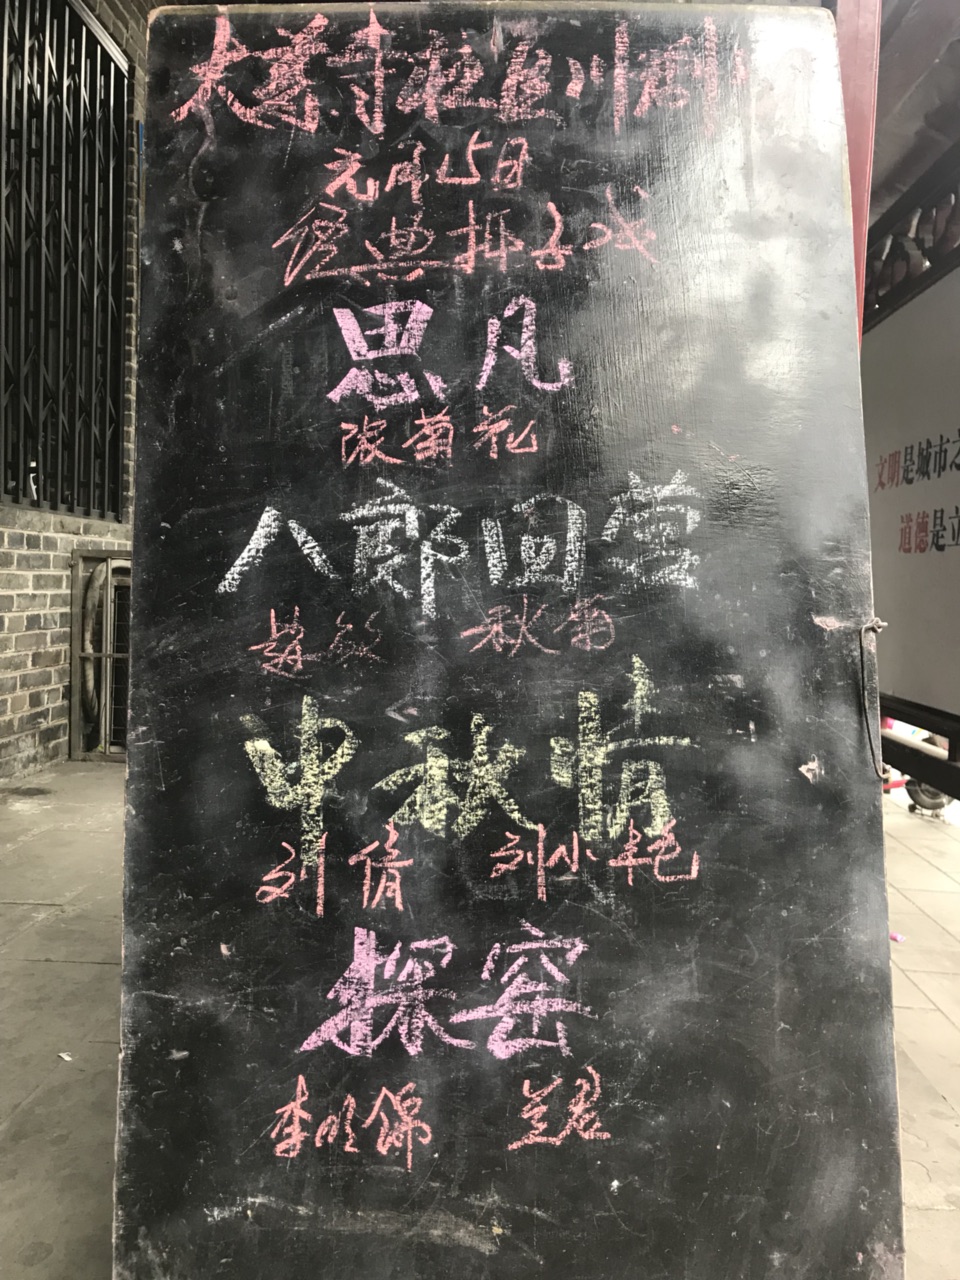 大慈寺社区川剧
元月15日
经典折子戏
思凡
张菊花
八郎回营
秋菊
中秋情
刘倩 刘小艳
探窑
李明錦 兰君
文明是城市之
道德是立